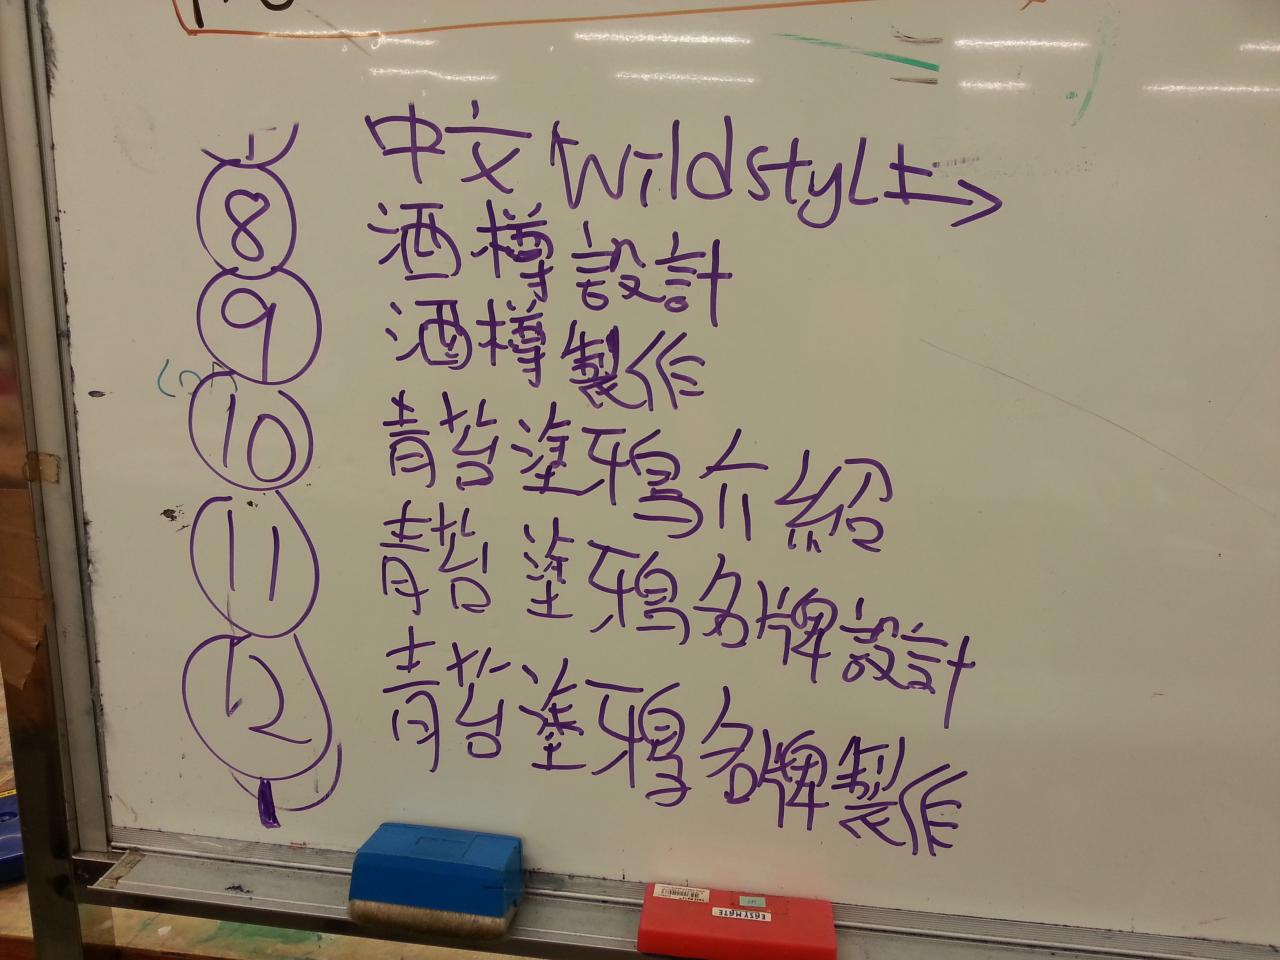 中文Wildstyle
⑧ 酒樽設計
⑨ 酒樽製作
⑩ 青苔塗鴉介紹
⑪ 青苔塗鴉名牌設計
⑫ 青苔塗鴉名牌製作
EASYMATE